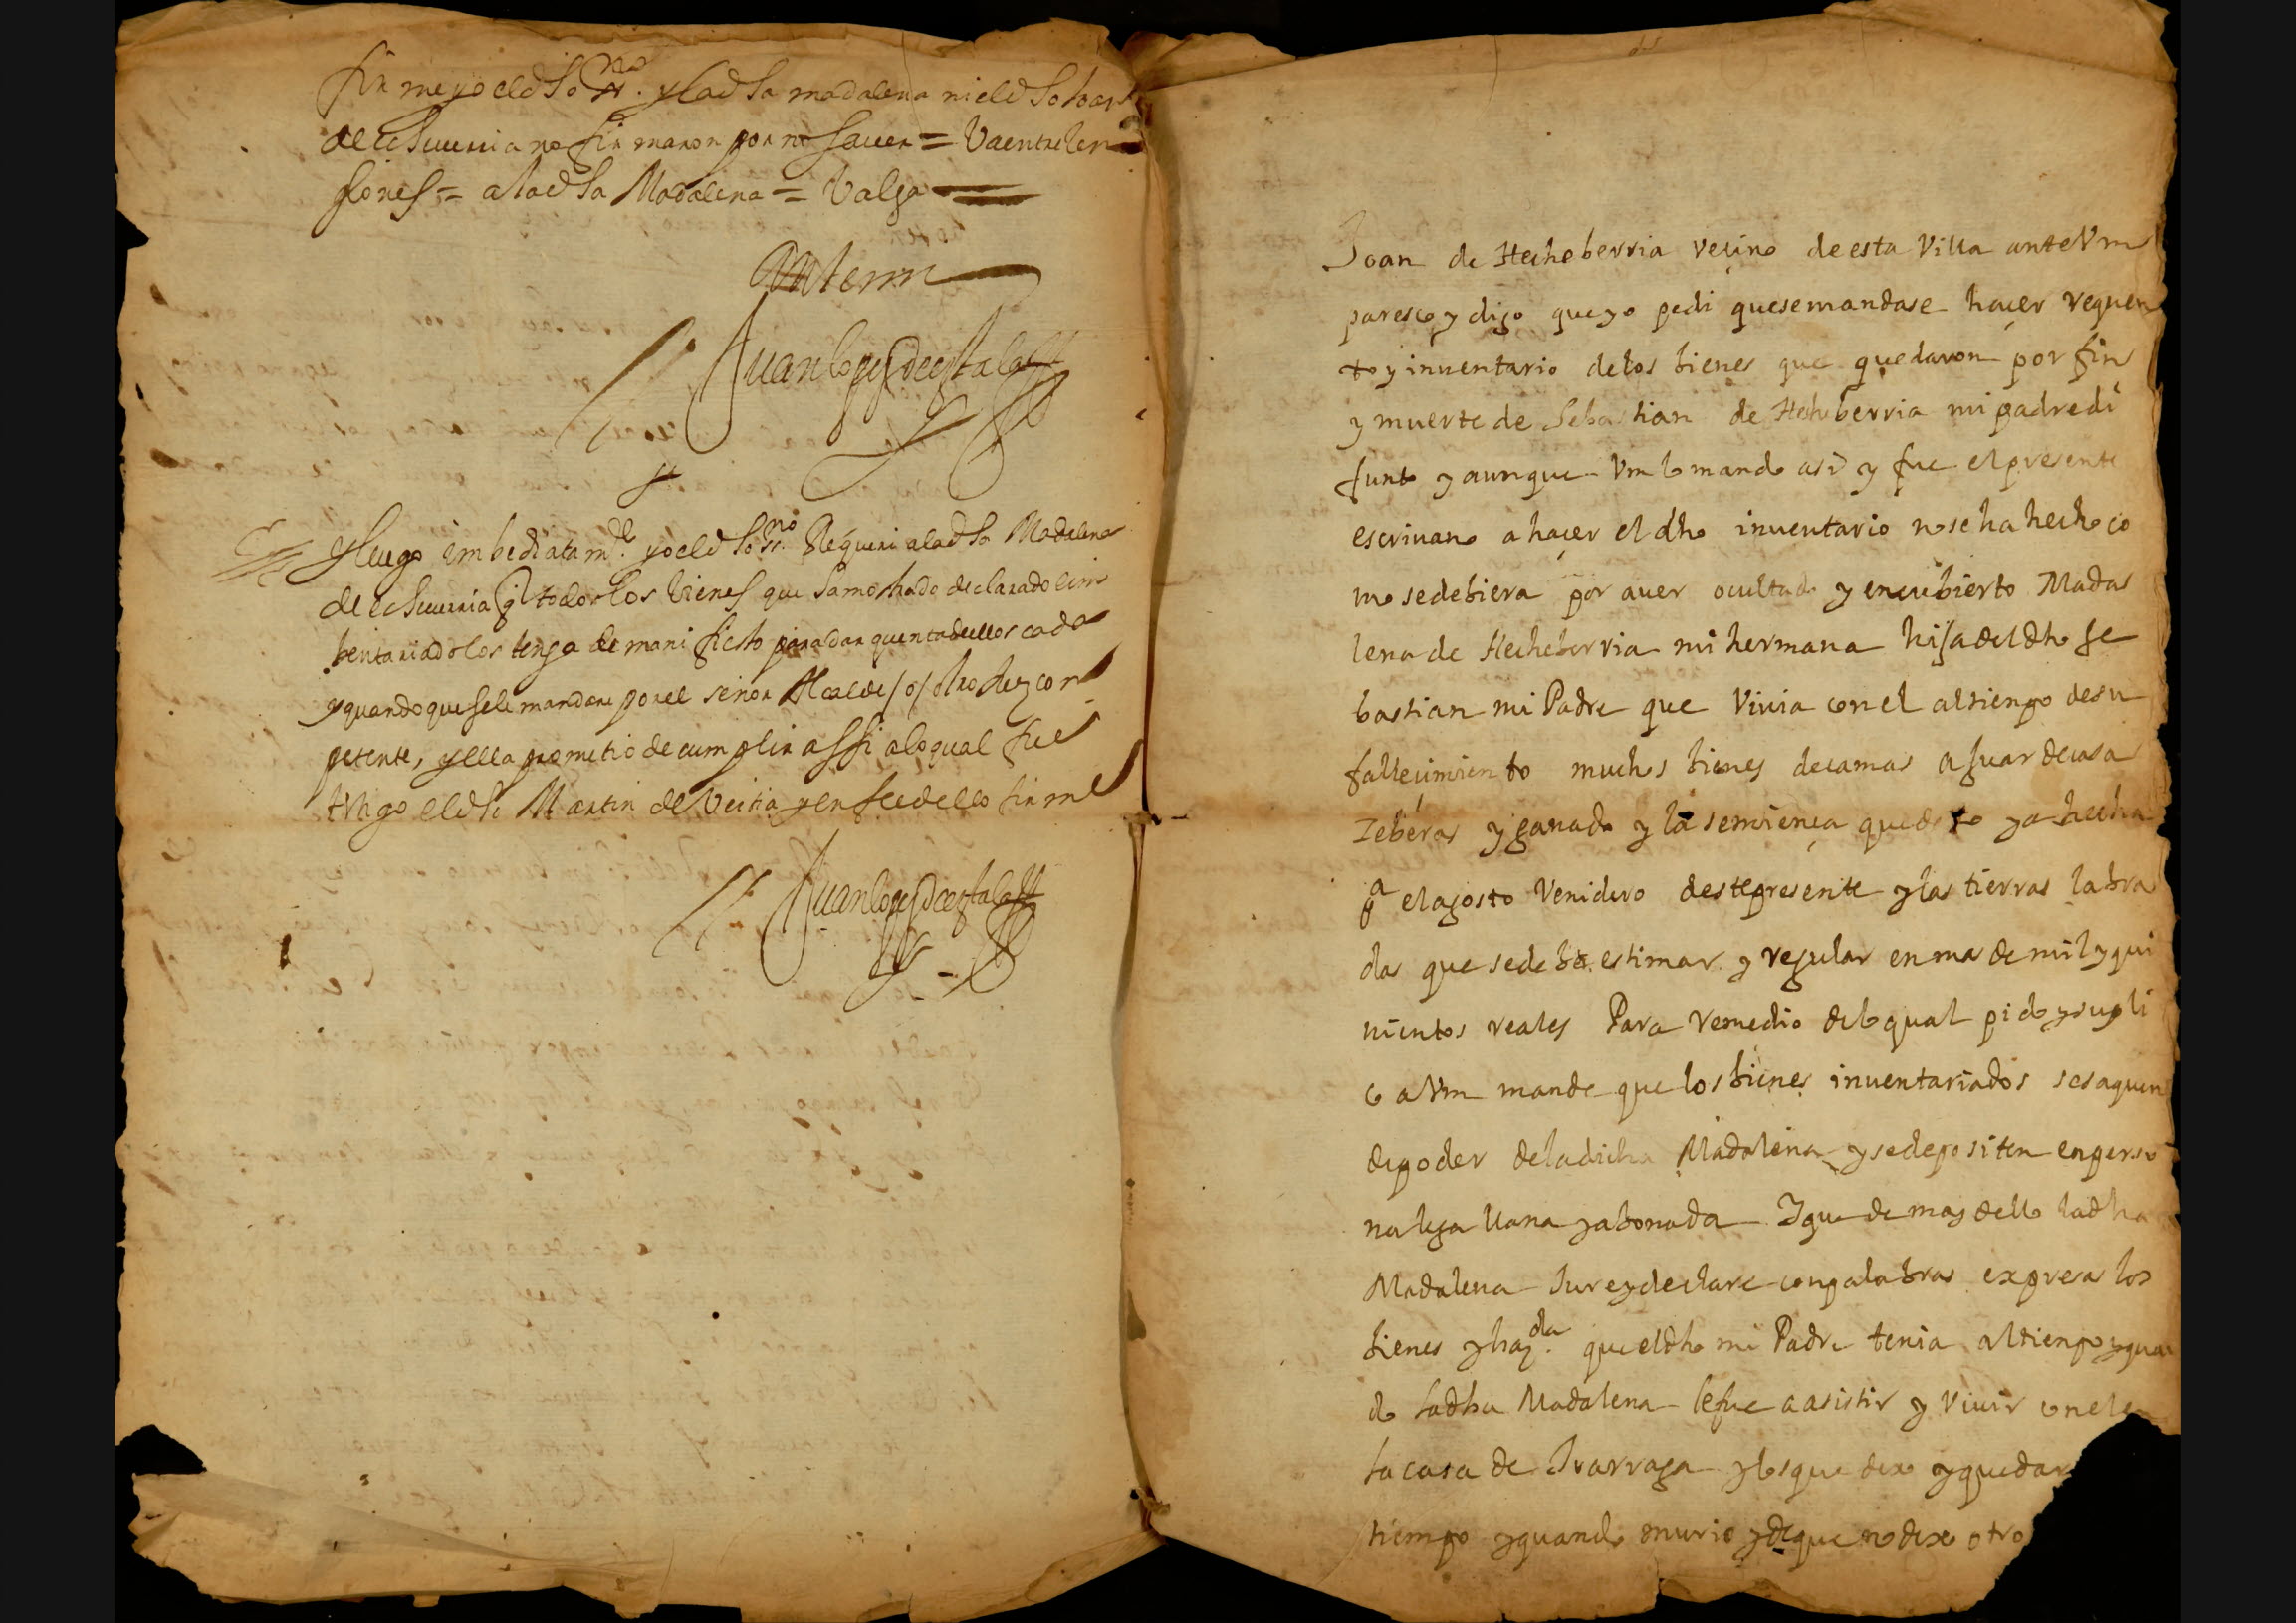 firme yo el dho ssno. y la dha madalena ni el dho
de echeuerria no firmaron por no sauer = Va entre
= a la dha Madalena = Valga
Ante mi
Juan lopez de
y luego imbediatamte. yo el dho ssno. Requeri a la dha Madalena
de echeuerria q todos los bienes que ha mostrado declarado e im
bentariado los tenga de manifiesto para dar quenta de ellos cada
y quando que se le mandare por el señor Alcalde / o / otro Juez con
petente, y ella prometio de cumplir assi a lo qual fue
tstigo el dho Martin de Veitia y en fee de ello firme
Juan lopez de
Joan de Hecheberria veçino de esta Villa ante Vm
paresco y digo que yo pedi que se mandase haçer requen
to y inuentario de los bienes que quedaron por fin
y muerte de Sebastian de Hecheberria mi padre di
funto y aunque Vm lo mando asi y fue el presente
escriuano a haçer el dho inuentario no se ha hecho co
mo se debiera por auer ocultado y encubierto Mada
lena de Hecheberria mi hermana hija del dho Se
bastian mi Padre que Viuia con el al tiempo de su
falleçimiento muchos bienes de camas ajuar de casa
Zeberas y ganado y la semiença que dexo ya hecha
pa el agosto Venidero deste presente y las tierras labra
das que se debe estimar y regular en mas de mil y qui
nientos reales Para remedio de lo qual pido y supli
co a Vm mande que los bienes inuentariados se saquen
de poder de la dicha Madalena y se depositen en perso
na lega llana y abonada Y que de mas dello la dha
Madalena Jure y declare con palabras expresas los
bienes y hazda. que el dho mi Padre tenia al tiempo y quan
do la dha Madalena le fue a asistir y Viuir con el en
la casa de Ivarraga y los que dexo y quedar
tiempo y quando murio y de que no dexo otro